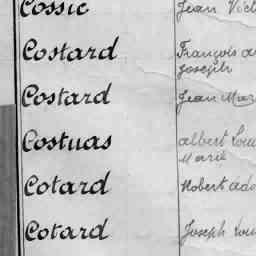 Cossic Jean Vict
Costard François a
Joseph
Costard Jean Mar
Costuas albert Lou
Marie
Cotard Robert ado
Cotard Joseph Lou